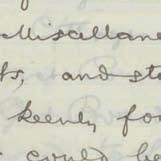 Miscellane
ts, and sto
keenly fo
could b